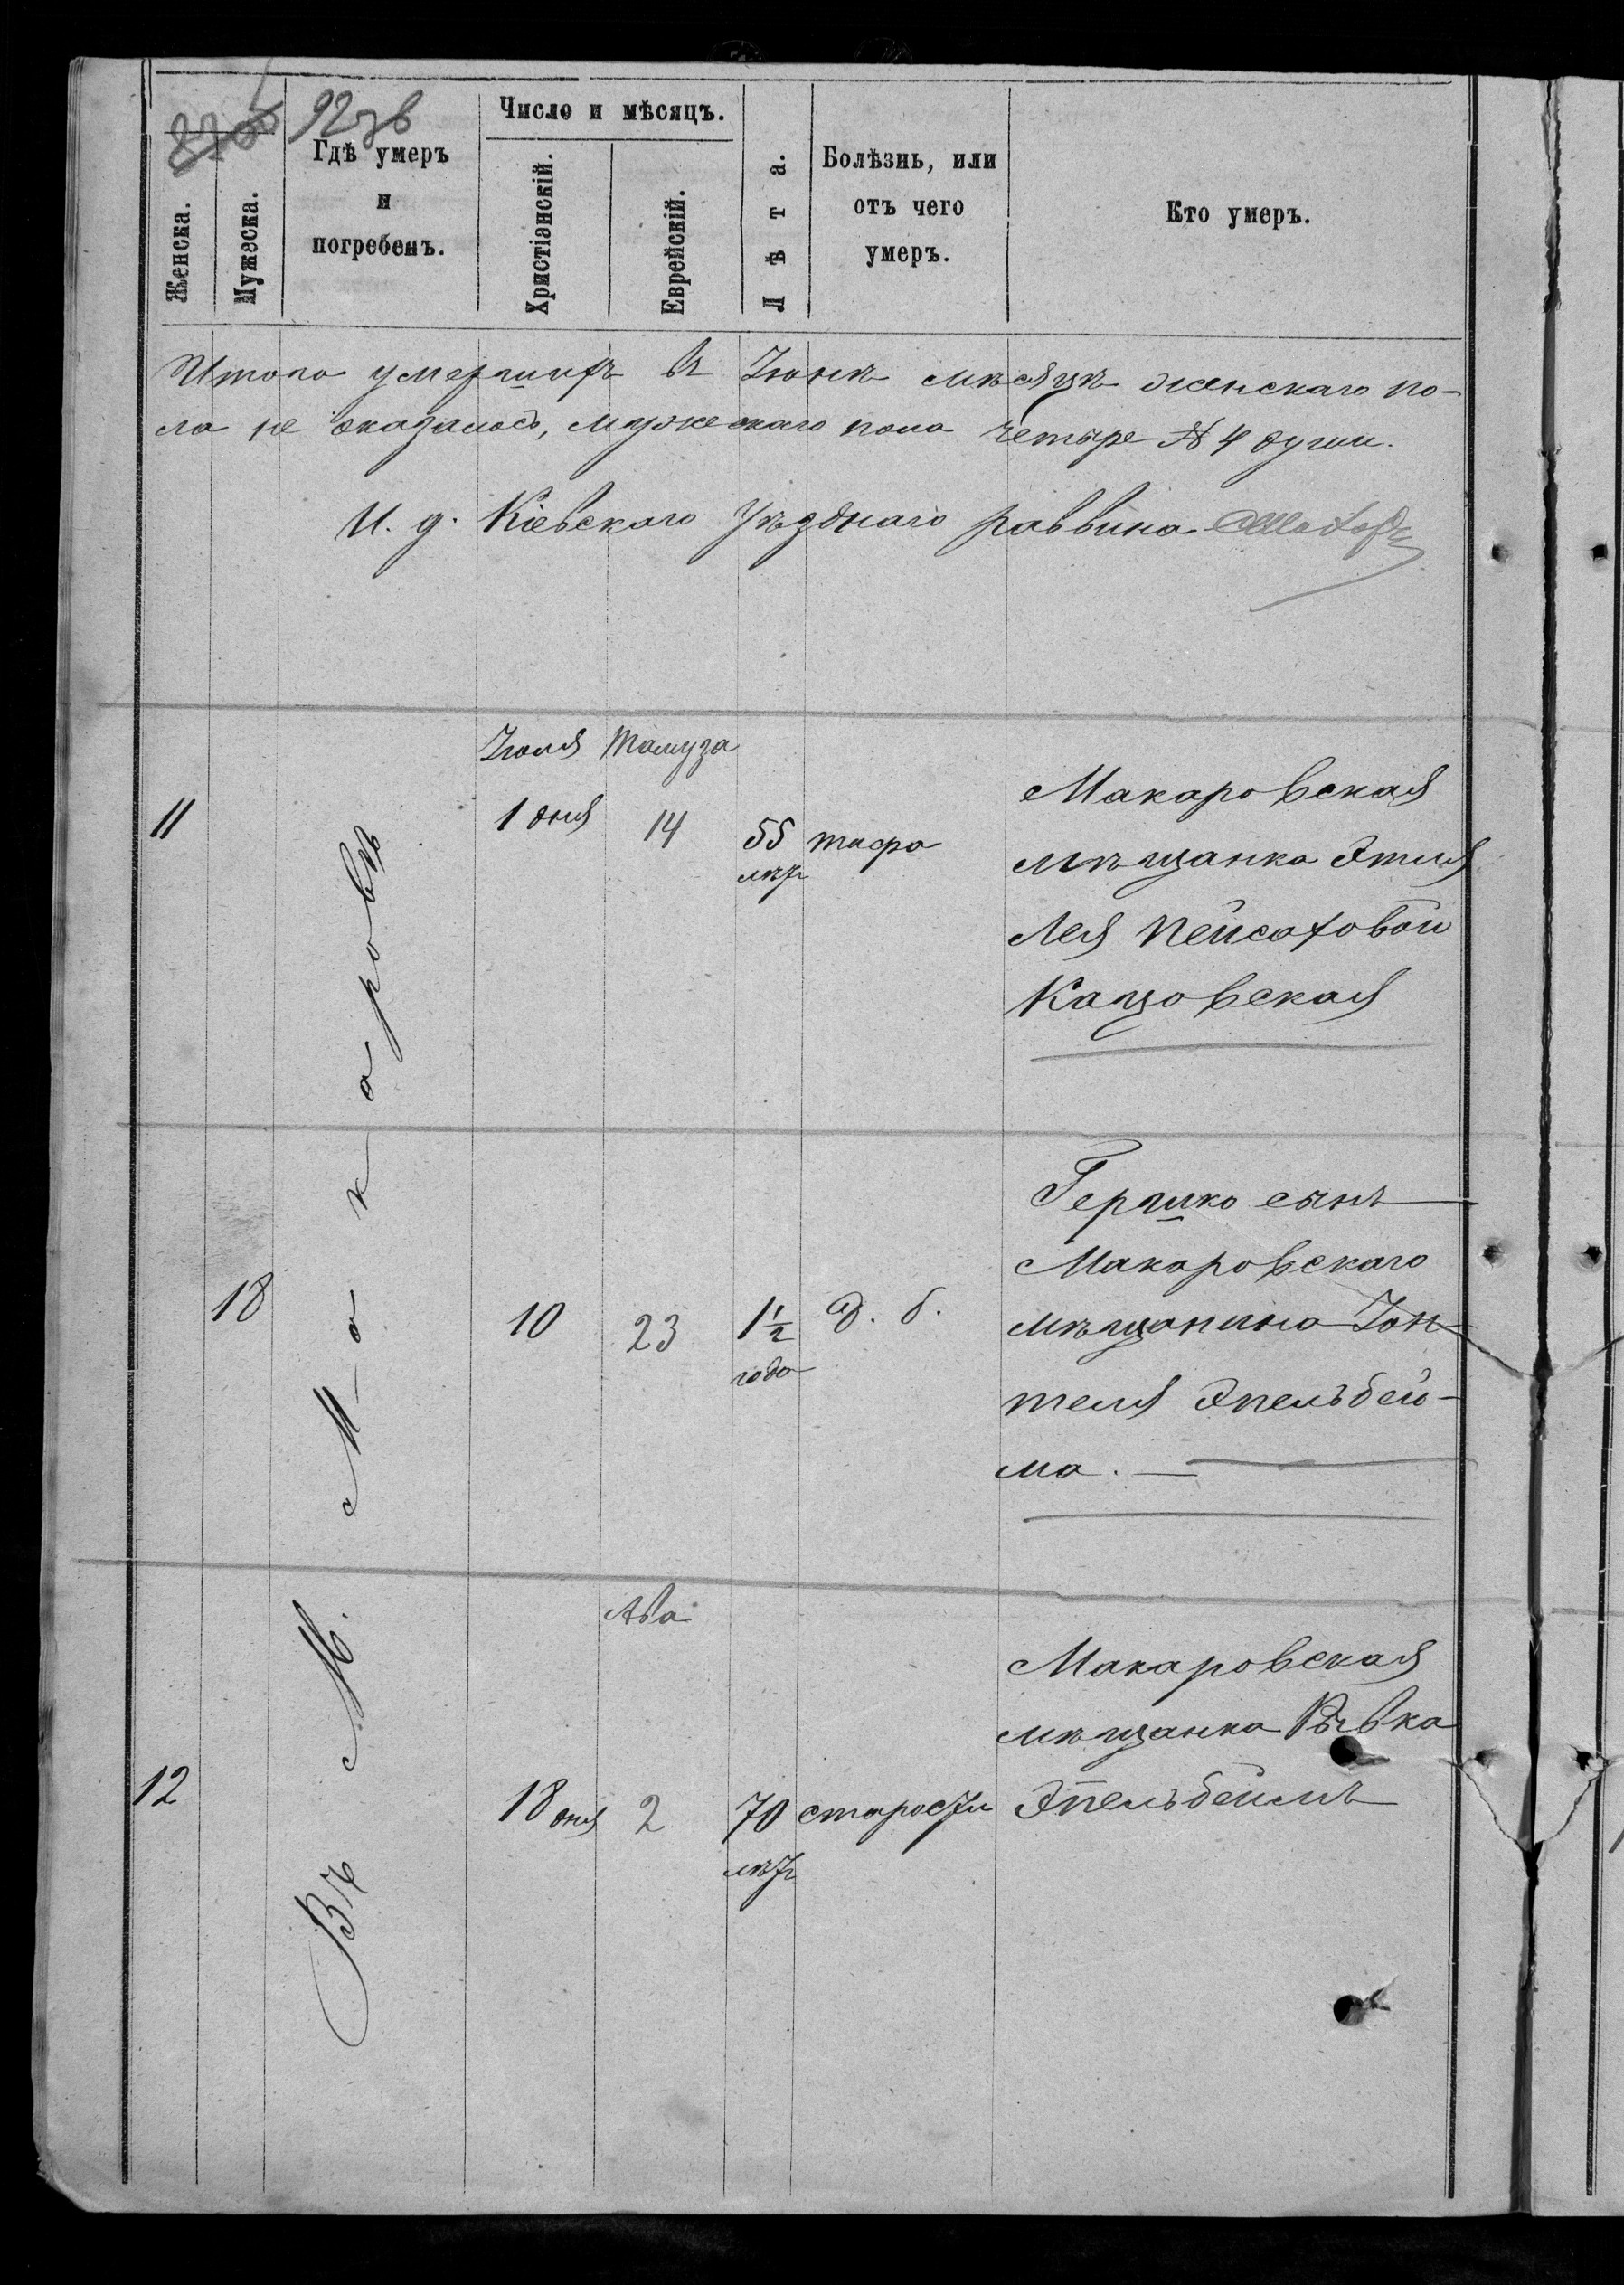 92зв
Женска.
Мужеска.
Гдѣ умеръ
и
погребенъ.
Число и мѣсяцъ.
Христіанскій.
Еврейскій.
Лѣта.
Болѣзнь, или
отъ чего
умеръ.
Кто умеръ.
Итого умершихъ въ Іюнѣ мѣсяцѣ женскаго по-
ла не оказалось, мужескаго пола четыре № 4 души.
И. д. Кіевскаго Уѣзднаго раввина
Въ М. Макаровѣ
Іюля Тамуза
11
1 дня
14
55
лѣтъ
тифа
Макаровская
мѣщанка Этля
Лея Пейсаховой
Кацовская
18
10
23
1½
года
Гершко сынъ
Макаровскаго
мѣщанина Іон-
теля Эпельбей-
ма.
Ава
12
18 дня
2
70
лѣтъ
старости
Макаровская
мѣщанка Рывка
Эпельбеймъ